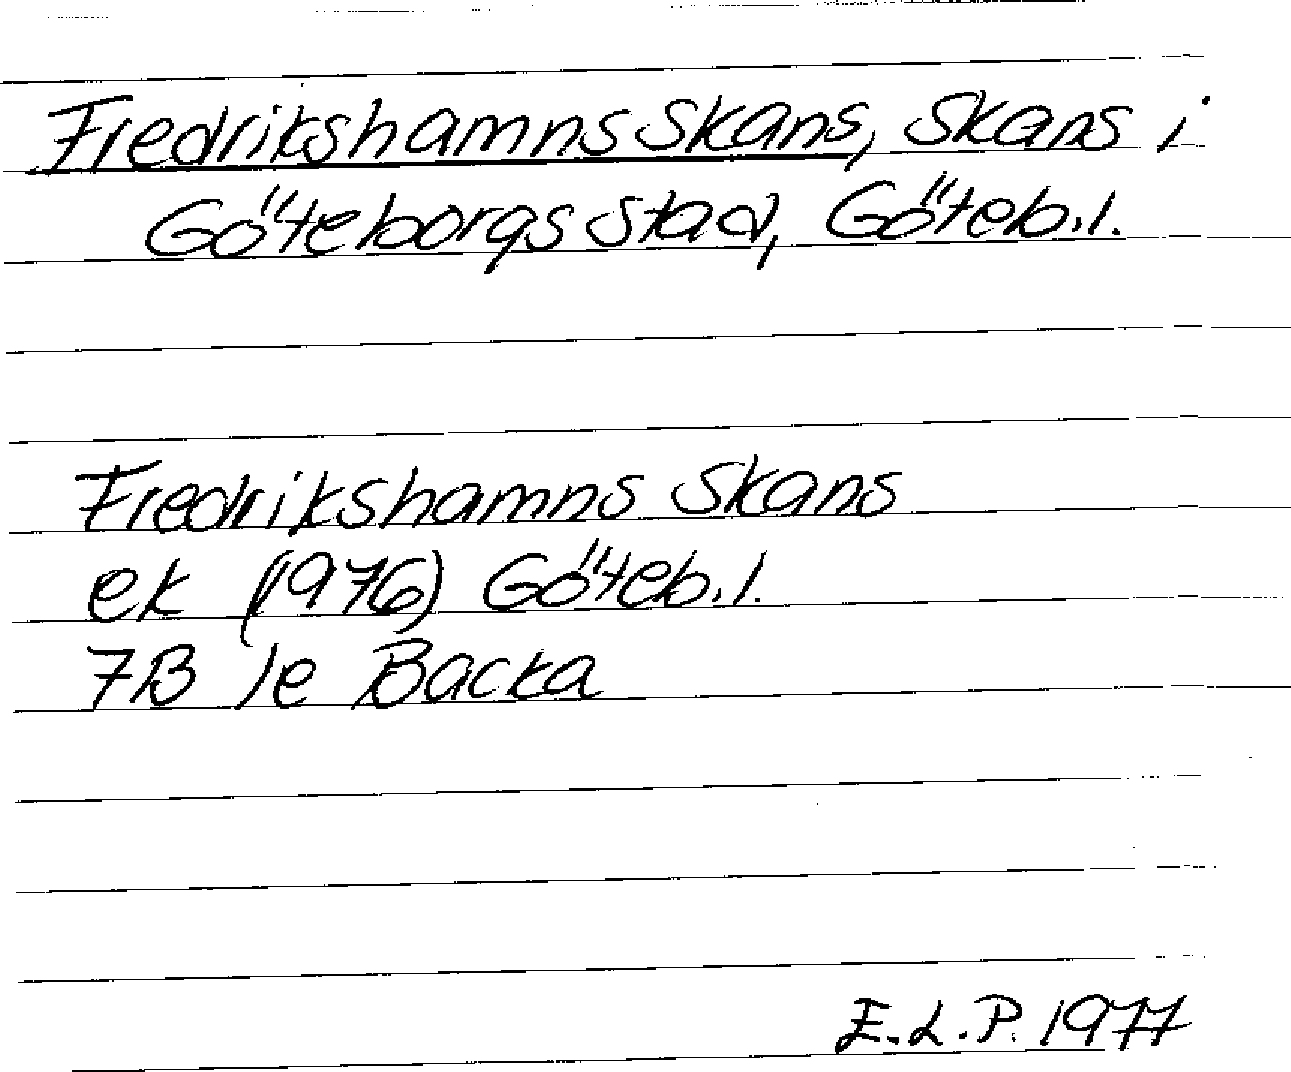 Fredrikshamns skans, skans i
Göteborgs stad, Göteb.l.
Fredrikshamns skans
ek (1976) Göteb.l.
7B 1e Backa
E.L.P. 1977